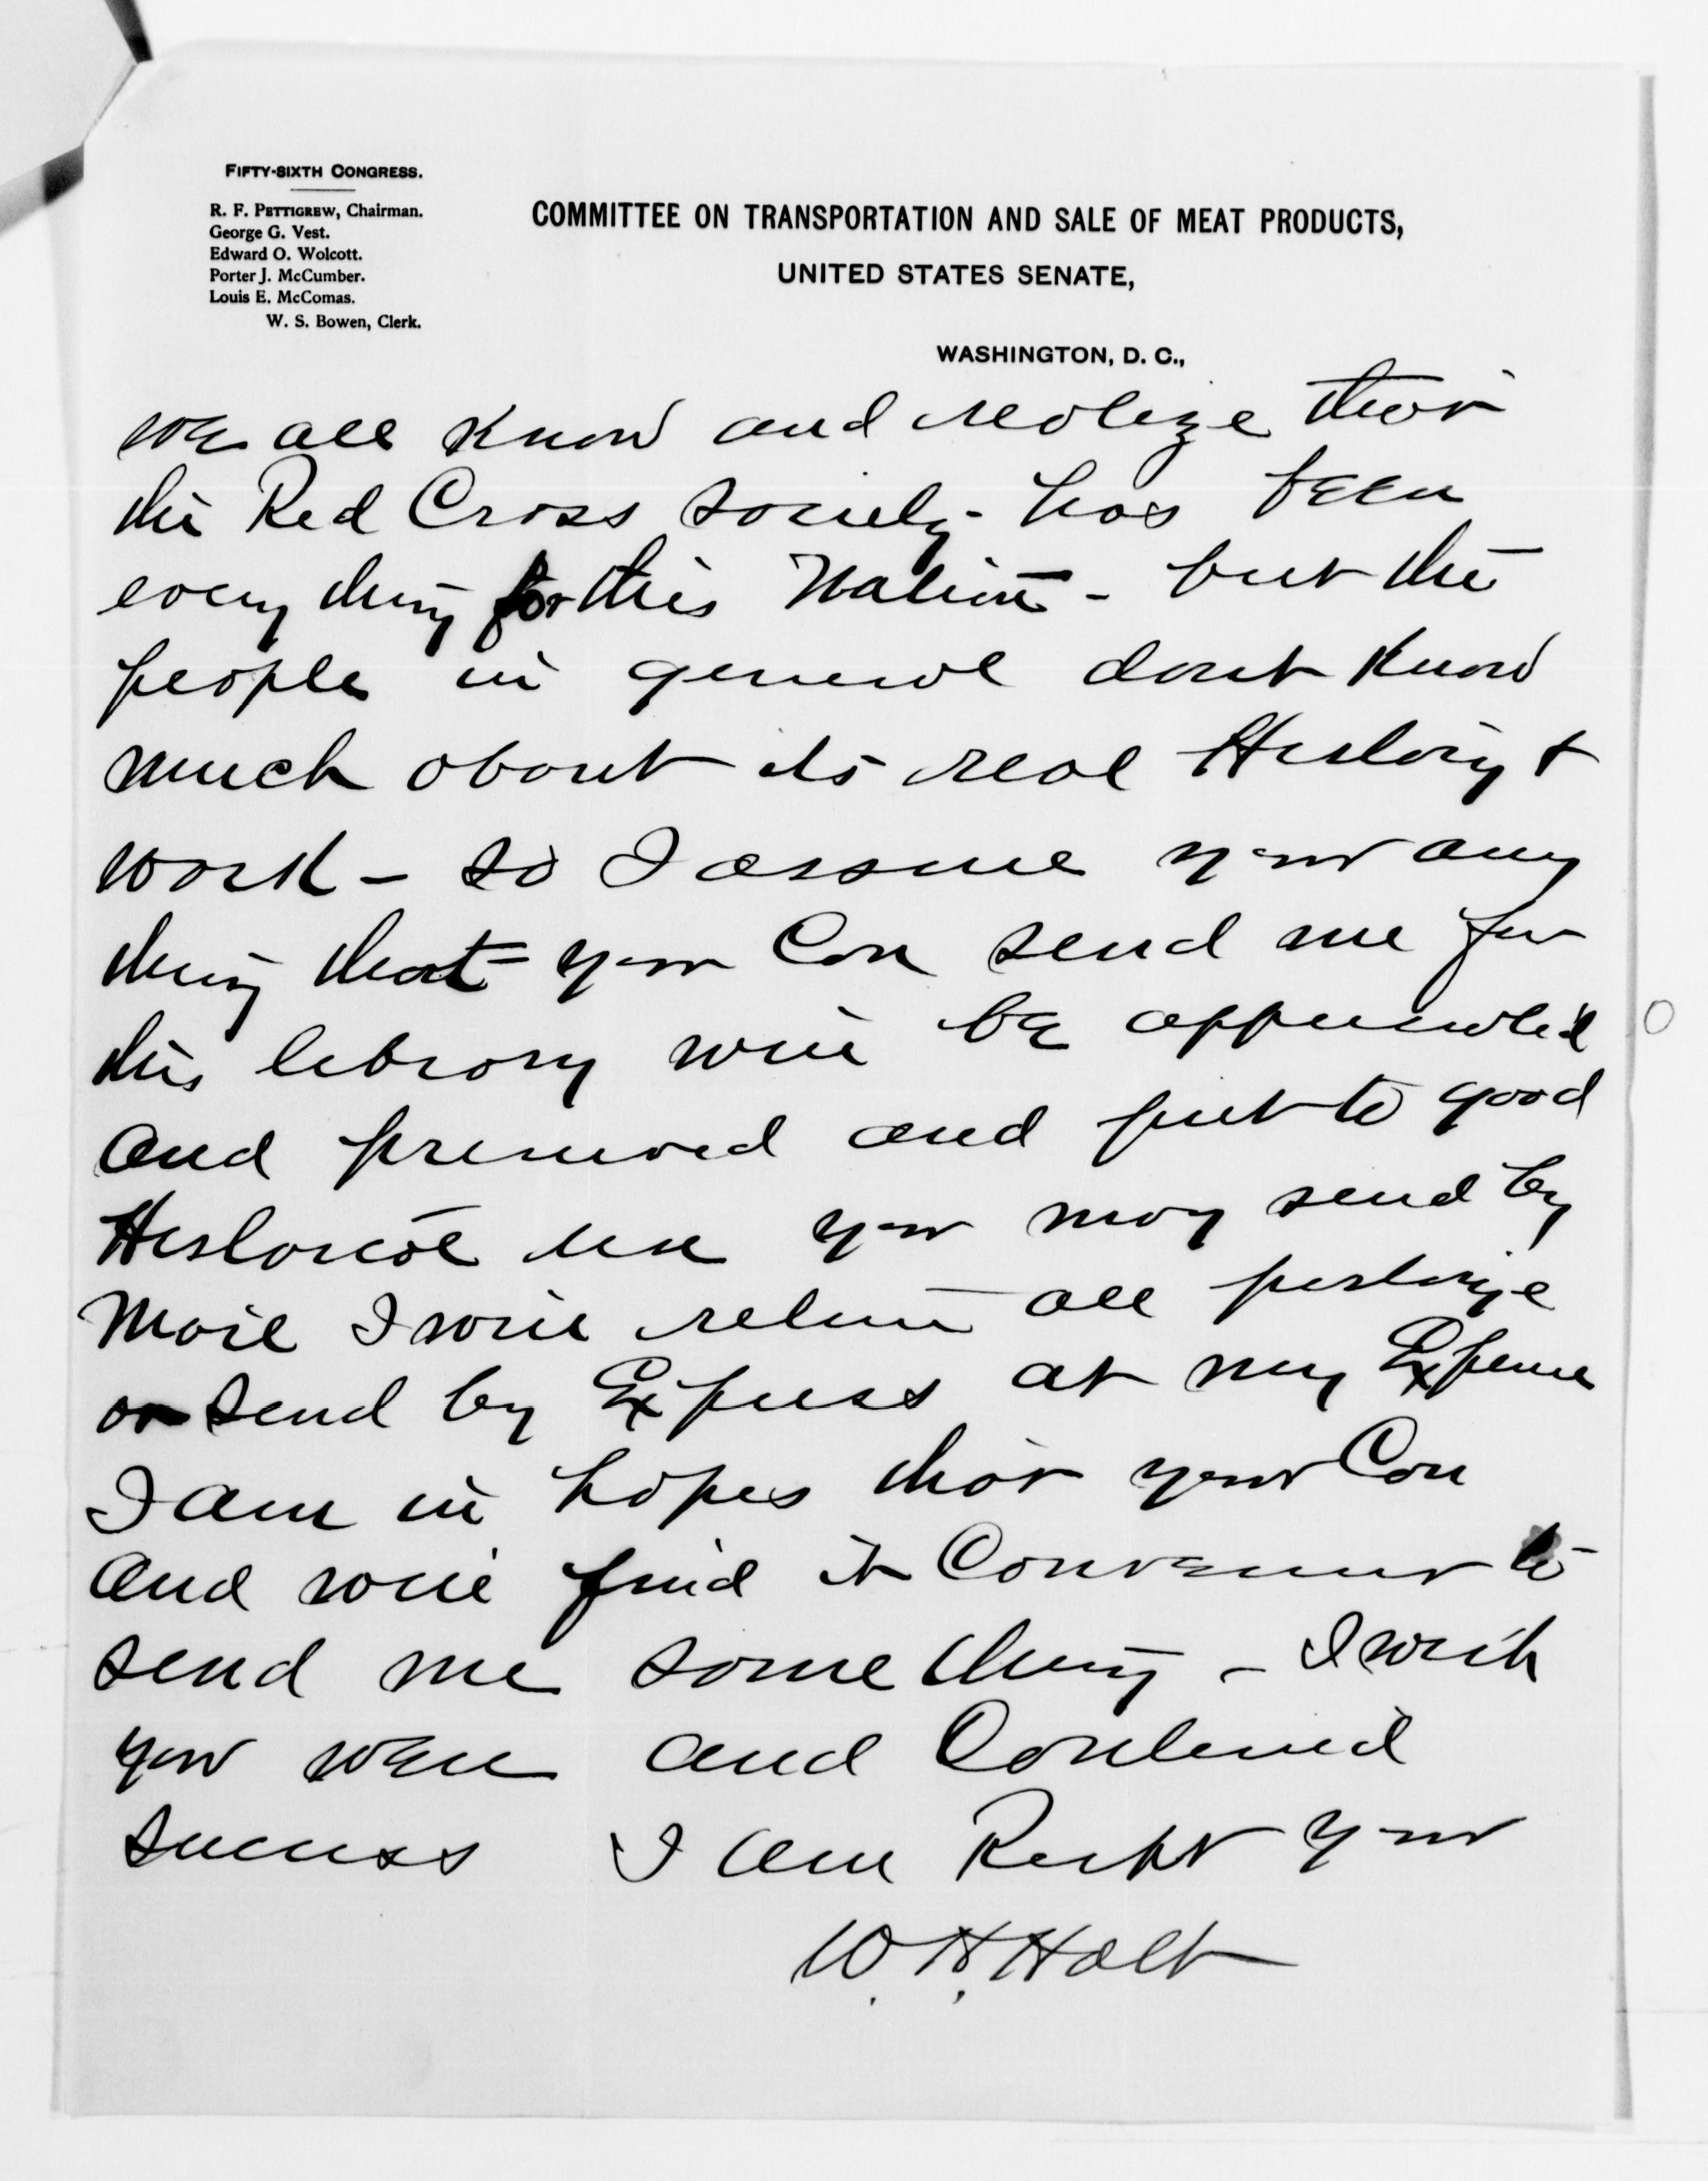 FIFTY-SIXTH CONGRESS.
R. F. PETTIGREW, Chairman.
George G. Vest.
Edward O. Wolcott.
Porter J. McCumber.
Louis E. McComas.
W. S. Bowen, Clerk.
COMMITTEE ON TRANSPORTATION AND SALE OF MEAT PRODUCTS,
UNITED STATES SENATE,
WASHINGTON, D. C.,
we all know and realize that
the Red Cross society - has been
every thing for this Nation - but the
people in general dont know
much about its real History &
work - so I assure you any
thing that you Can send me for
this library will be appreciated
and preserved and put to good
Historical use you may send by
Mail I will return all postage
or send by Express at my Expense
I am in hopes that you Can
and will find it Convenient to
send me some thing - I wish
you well and Continued
success I am Respt your
W. H. Holt